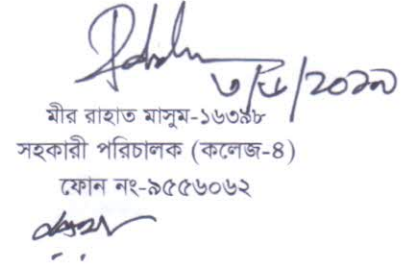 ৩/৮/২০১৯
মীর রাহাত মাসুম-১৬৩৯৮
সহকারী পরিচালক (কলেজ-৪)
ফোন নং-৯৫৫৬০৬২